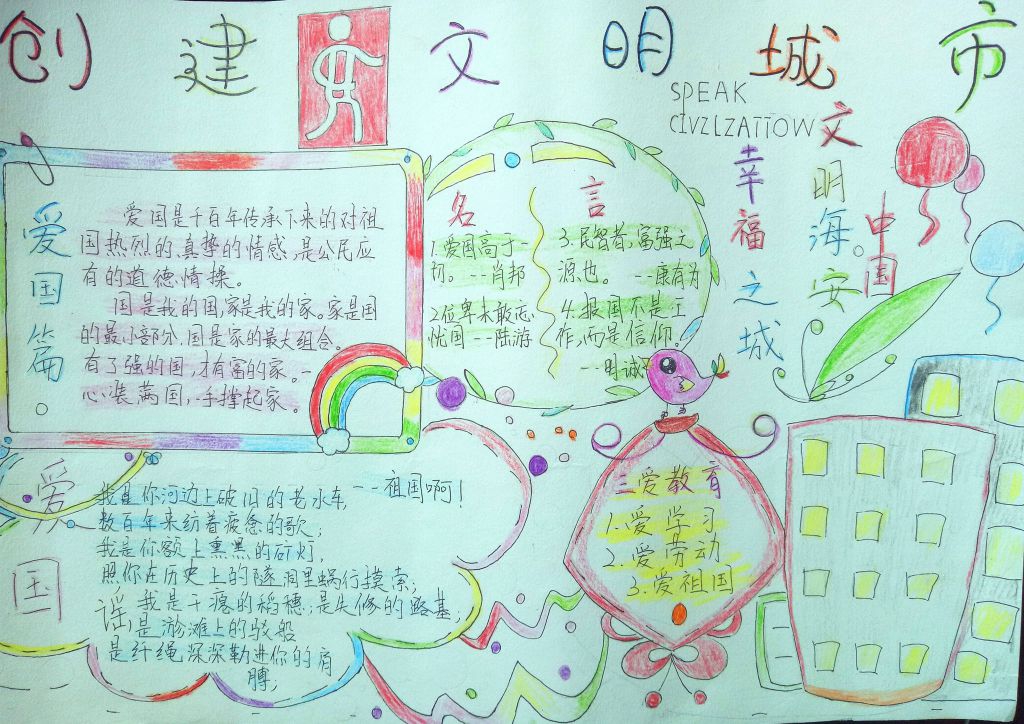 创建文明城市
SPEAK
CIVZLZATION
文明海安。
幸福之城
中国
爱国篇。
爱国是千百年传承下来的对祖
国热烈的、真挚的情感,是公民应
有的道德情操。
国是我的国,家是我的家。家是国
的最小部分,国是家的最大组合。
有了强的国,才有富的家。一
心装满国,一手撑起家。
名言
1.爱国高于一
切。--肖邦
2位卑未敢忘
忧国--陆游
3.民智者,富强之
源也。--康有为
4.报国不是工
作,而是信仰。
--明诚
爱国谣
--祖国啊!
我是你河边上破旧的老水车,
数百年来纺着疲惫的歌;
我是你额上熏黑的矿灯,
照你在历史上的隧洞里蜗行摸索;
我是干瘪的稻穗;是失修的路基;
是淤滩上的驳船
是纤绳深深勒进你的肩
膊;
三爱教育
1.爱学习
2.爱劳动
3.爱祖国